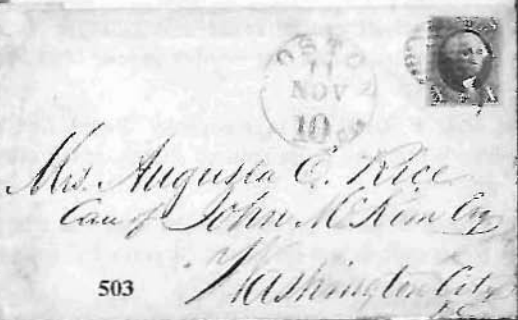 BOSTON
11
NOV
10
Mrs. Augusta E. Rice
Care of John McKim Esq
Washington City
D.C.
503